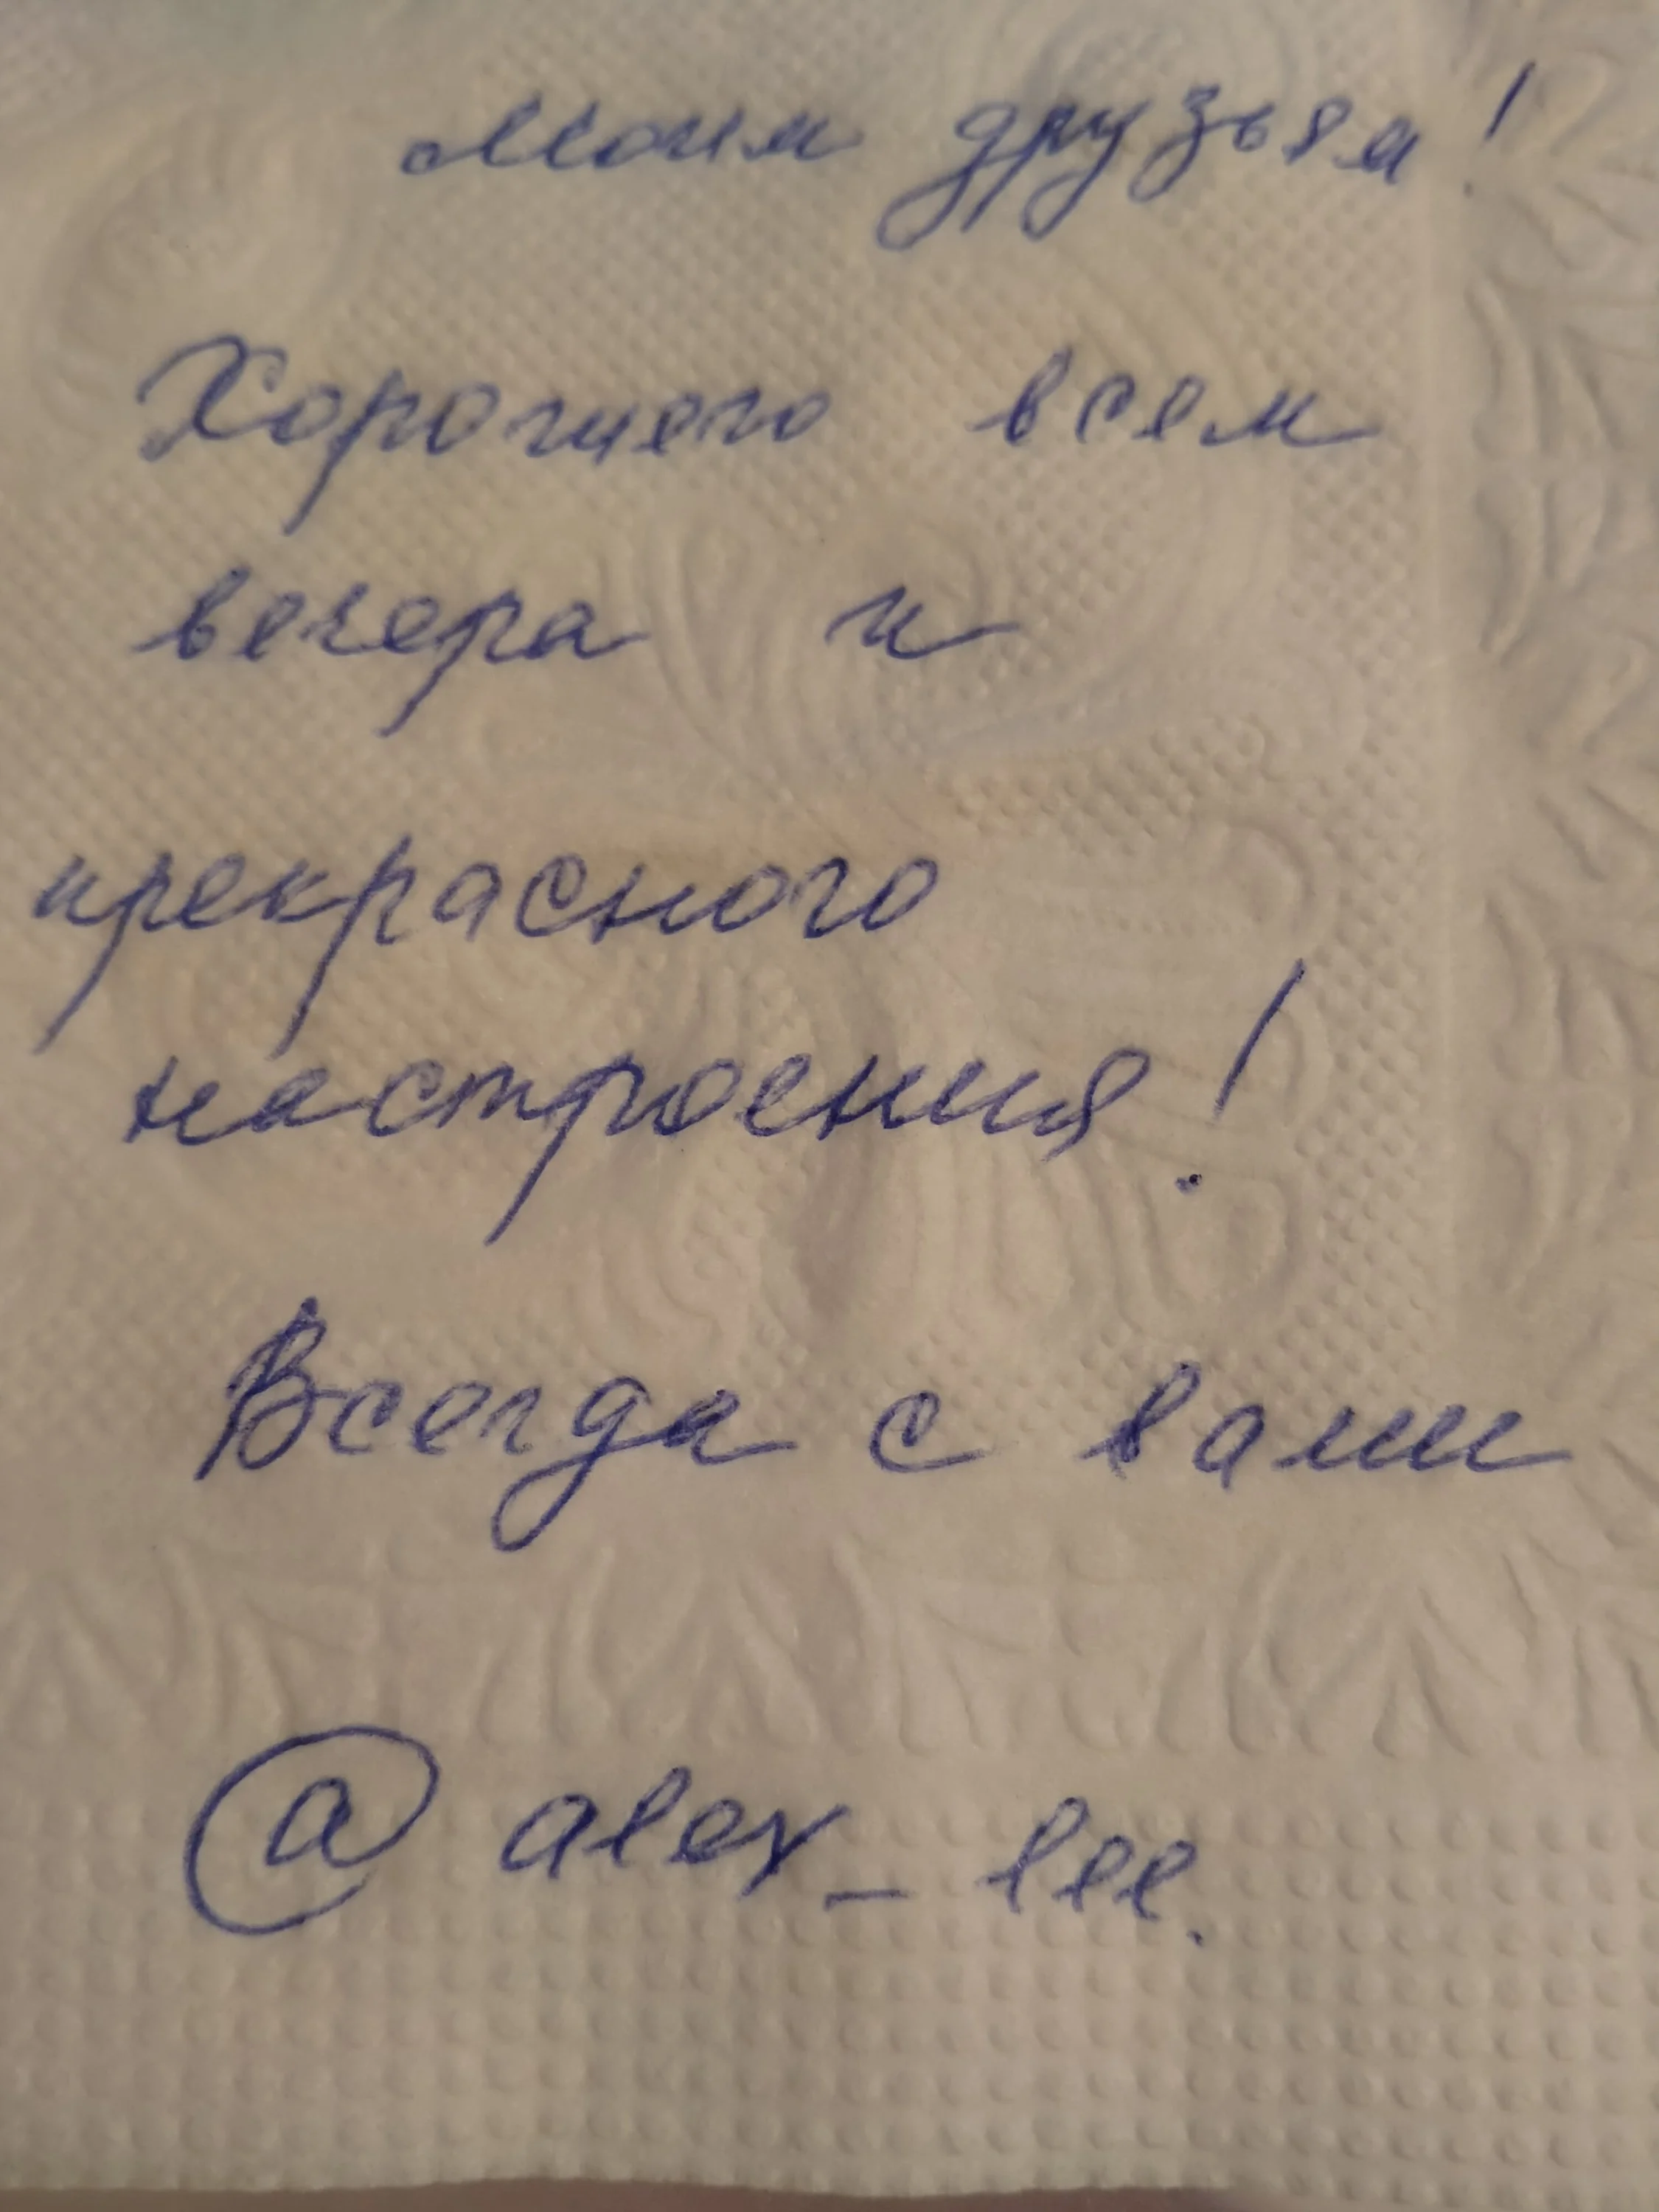 Моим друзьям!
Хорошего всем
вечера и
прекрасного
настроения!
Всегда с вами
@alex_lee.